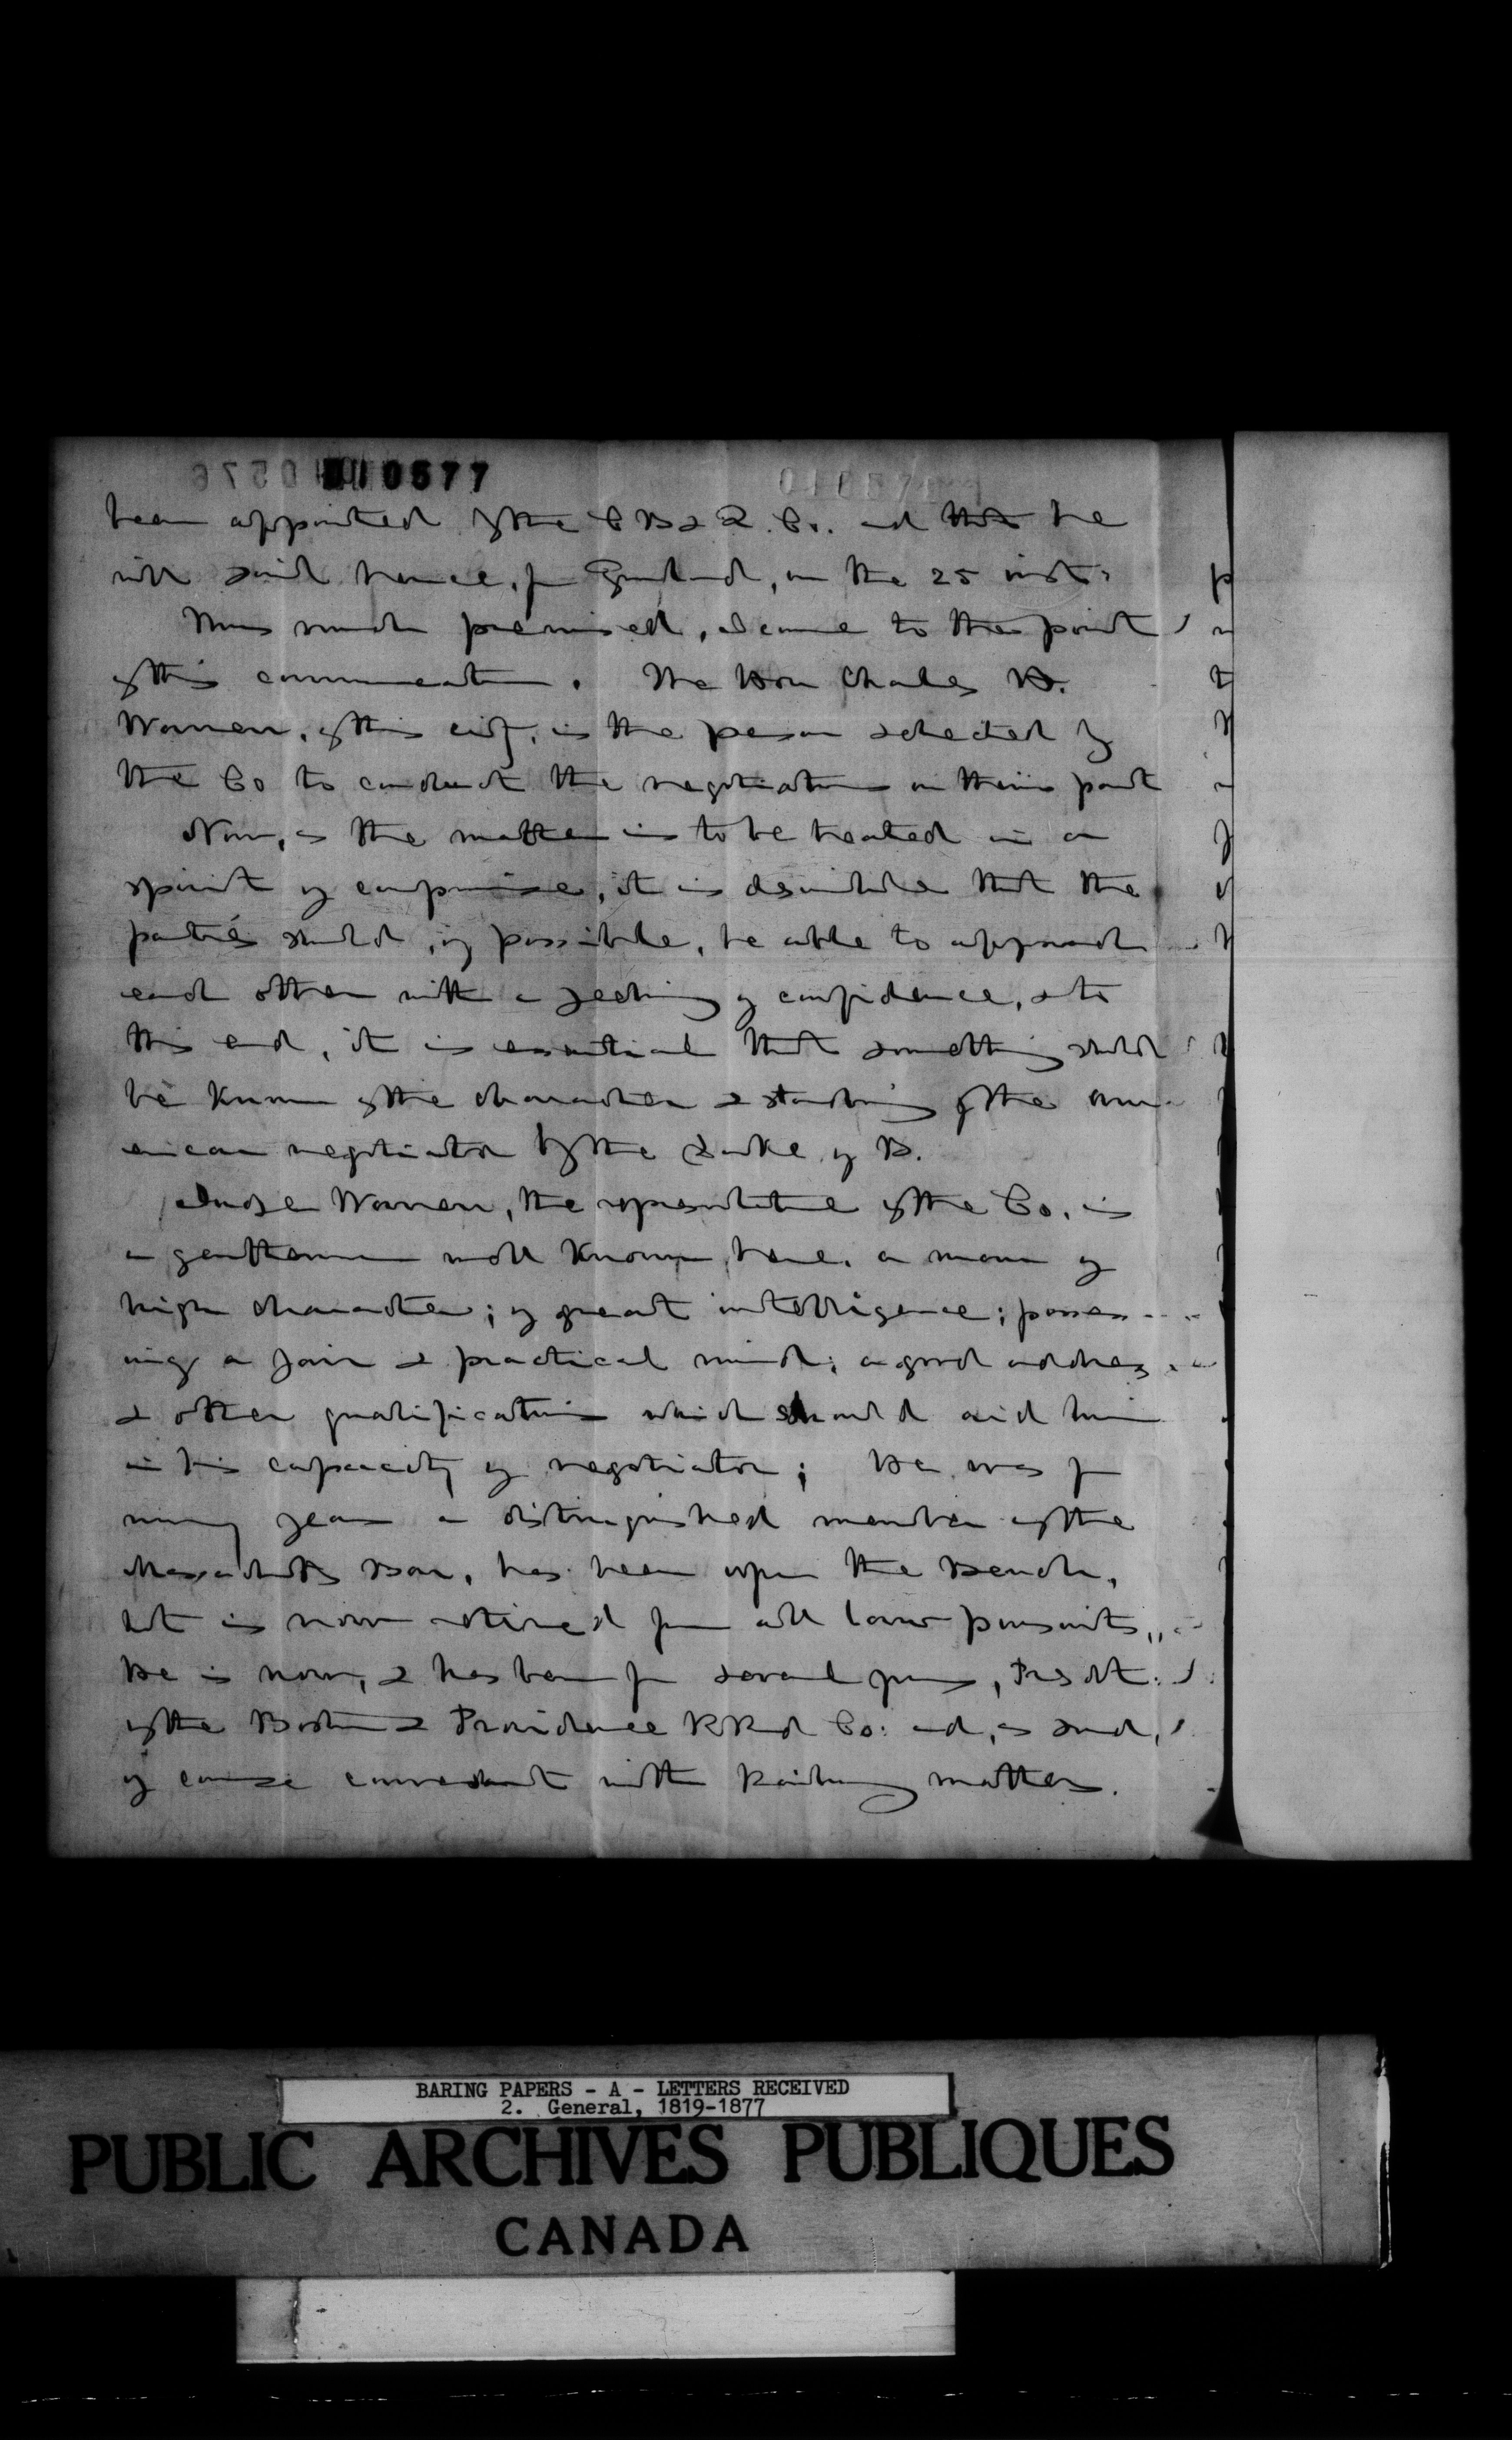 010577
been appointed by the C B & Q. Co. and that he
will sail hence, for England, on the 25 inst:
Thus much premised, I come to the point
of this communication. The Hon Charles H.
Warren, of this city, is the person selected by
the Co to conduct the negotiations on their part
Now, as the matter is to be treated in a
spirit of compromise, it is desirable that the
parties should, if possible, be able to approach
each other with a feeling of confidence, & to
this end, it is essential that something should
be known of the character & standing of the Am-
erican negotiator by the Duke of B.
Judge Warren, the representative of the Co. is
a gentleman well known here. a man of
high character; of great intelligence; possess
ing a fair & practical mind; a good address
& other qualifications which should aid him
in his capacity of negotiator; He was for
many years a distinguished member of the
Massachusetts Bar, has been upon the Bench,
but is now retired from all law pursuits,
He is now, & has been for several years, Presdt:
of the Boston & Providence RRd Co: and, as such,
of course conversant with Railway matters.
BARING PAPERS - A - LETTERS RECEIVED
2. General, 1819-1877
PUBLIC ARCHIVES PUBLIQUES
CANADA